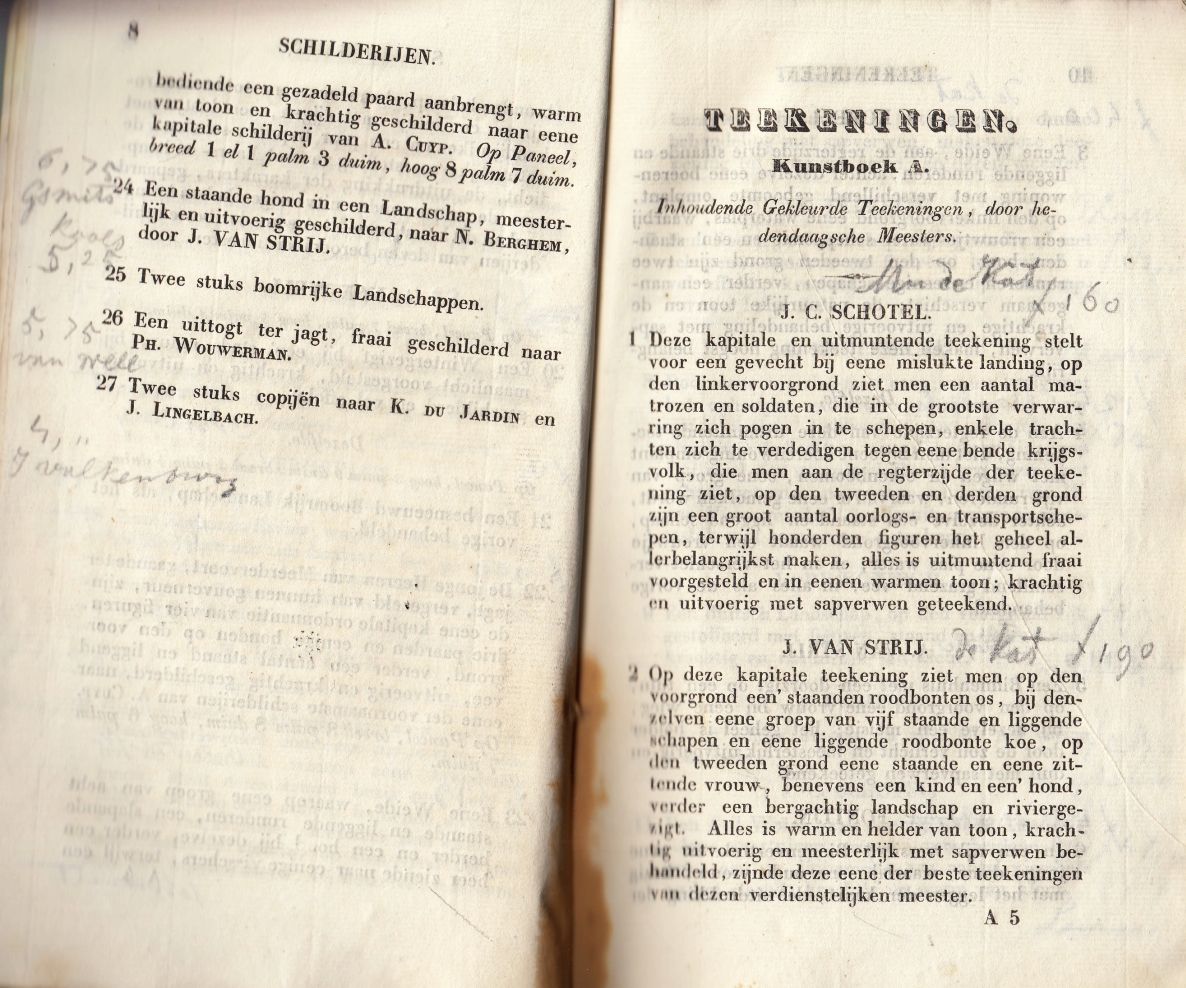 8
SCHILDERIJEN.
bediende een gezadeld paard aanbrengt, warm
van toon en krachtig geschilderd naar eene
kapitale schilderij van A. CUYP. Op Paneel,
breed 1 el 1 palm 3 duim, hoog 8 palm 7 duim.
6,75
Gsmits
24 Een staande hond in een Landschap, meester-
lijk en uitvoerig geschilderd, naar N. BERGHEM,
door J. VAN STRIJ.
5,25
25 Twee stuks boomrijke Landschappen.
26 Een uittogt ter jagt, fraai geschilderd naar
PH. WOUWERMAN.
5,75
van Well
27 Twee stuks copijën naar K. DU JARDIN en
J. LINGELBACH.
4,"
J valkenburg
TEEKENINGEN.
Kunstboek A.
Inhoudende Gekleurde Teekeningen, door he-
dendaagsche Meesters.
de Kat
J. C. SCHOTEL.
f 160
1 Deze kapitale en uitmuntende teekening stelt
voor een gevecht bij eene mislukte landing, op
den linkervoorgrond ziet men een aantal ma-
trozen en soldaten, die in de grootste verwar-
ring zich pogen in te schepen, enkele trach-
ten zich te verdedigen tegen eene bende krijgs-
volk, die men aan de regterzijde der teeke-
ning ziet, op den tweeden en derden grond
zijn een groot aantal oorlogs- en transportsche-
pen, terwijl honderden figuren het geheel al-
lerbelangrijkst maken, alles is uitmuntend fraai
voorgesteld en in eenen warmen toon; krachtig
en uitvoerig met sapverwen geteekend.
J. VAN STRIJ. de Kat f 190
2 Op deze kapitale teekening ziet men op den
voorgrond een' staanden roodbonten os, bij den-
zelven eene groep van vijf staande en liggende
schapen en eene liggende roodbonte koe, op
den tweeden grond eene staande en eene zit-
tende vrouw, benevens een kind en een' hond,
verder een bergachtig landschap en rivierge-
zigt. Alles is warm en helder van toon, krach-
tig uitvoerig en meesterlijk met sapverwen be-
handeld, zijnde deze eene der beste teekeningen
van dezen verdienstelijken meester.
A 5